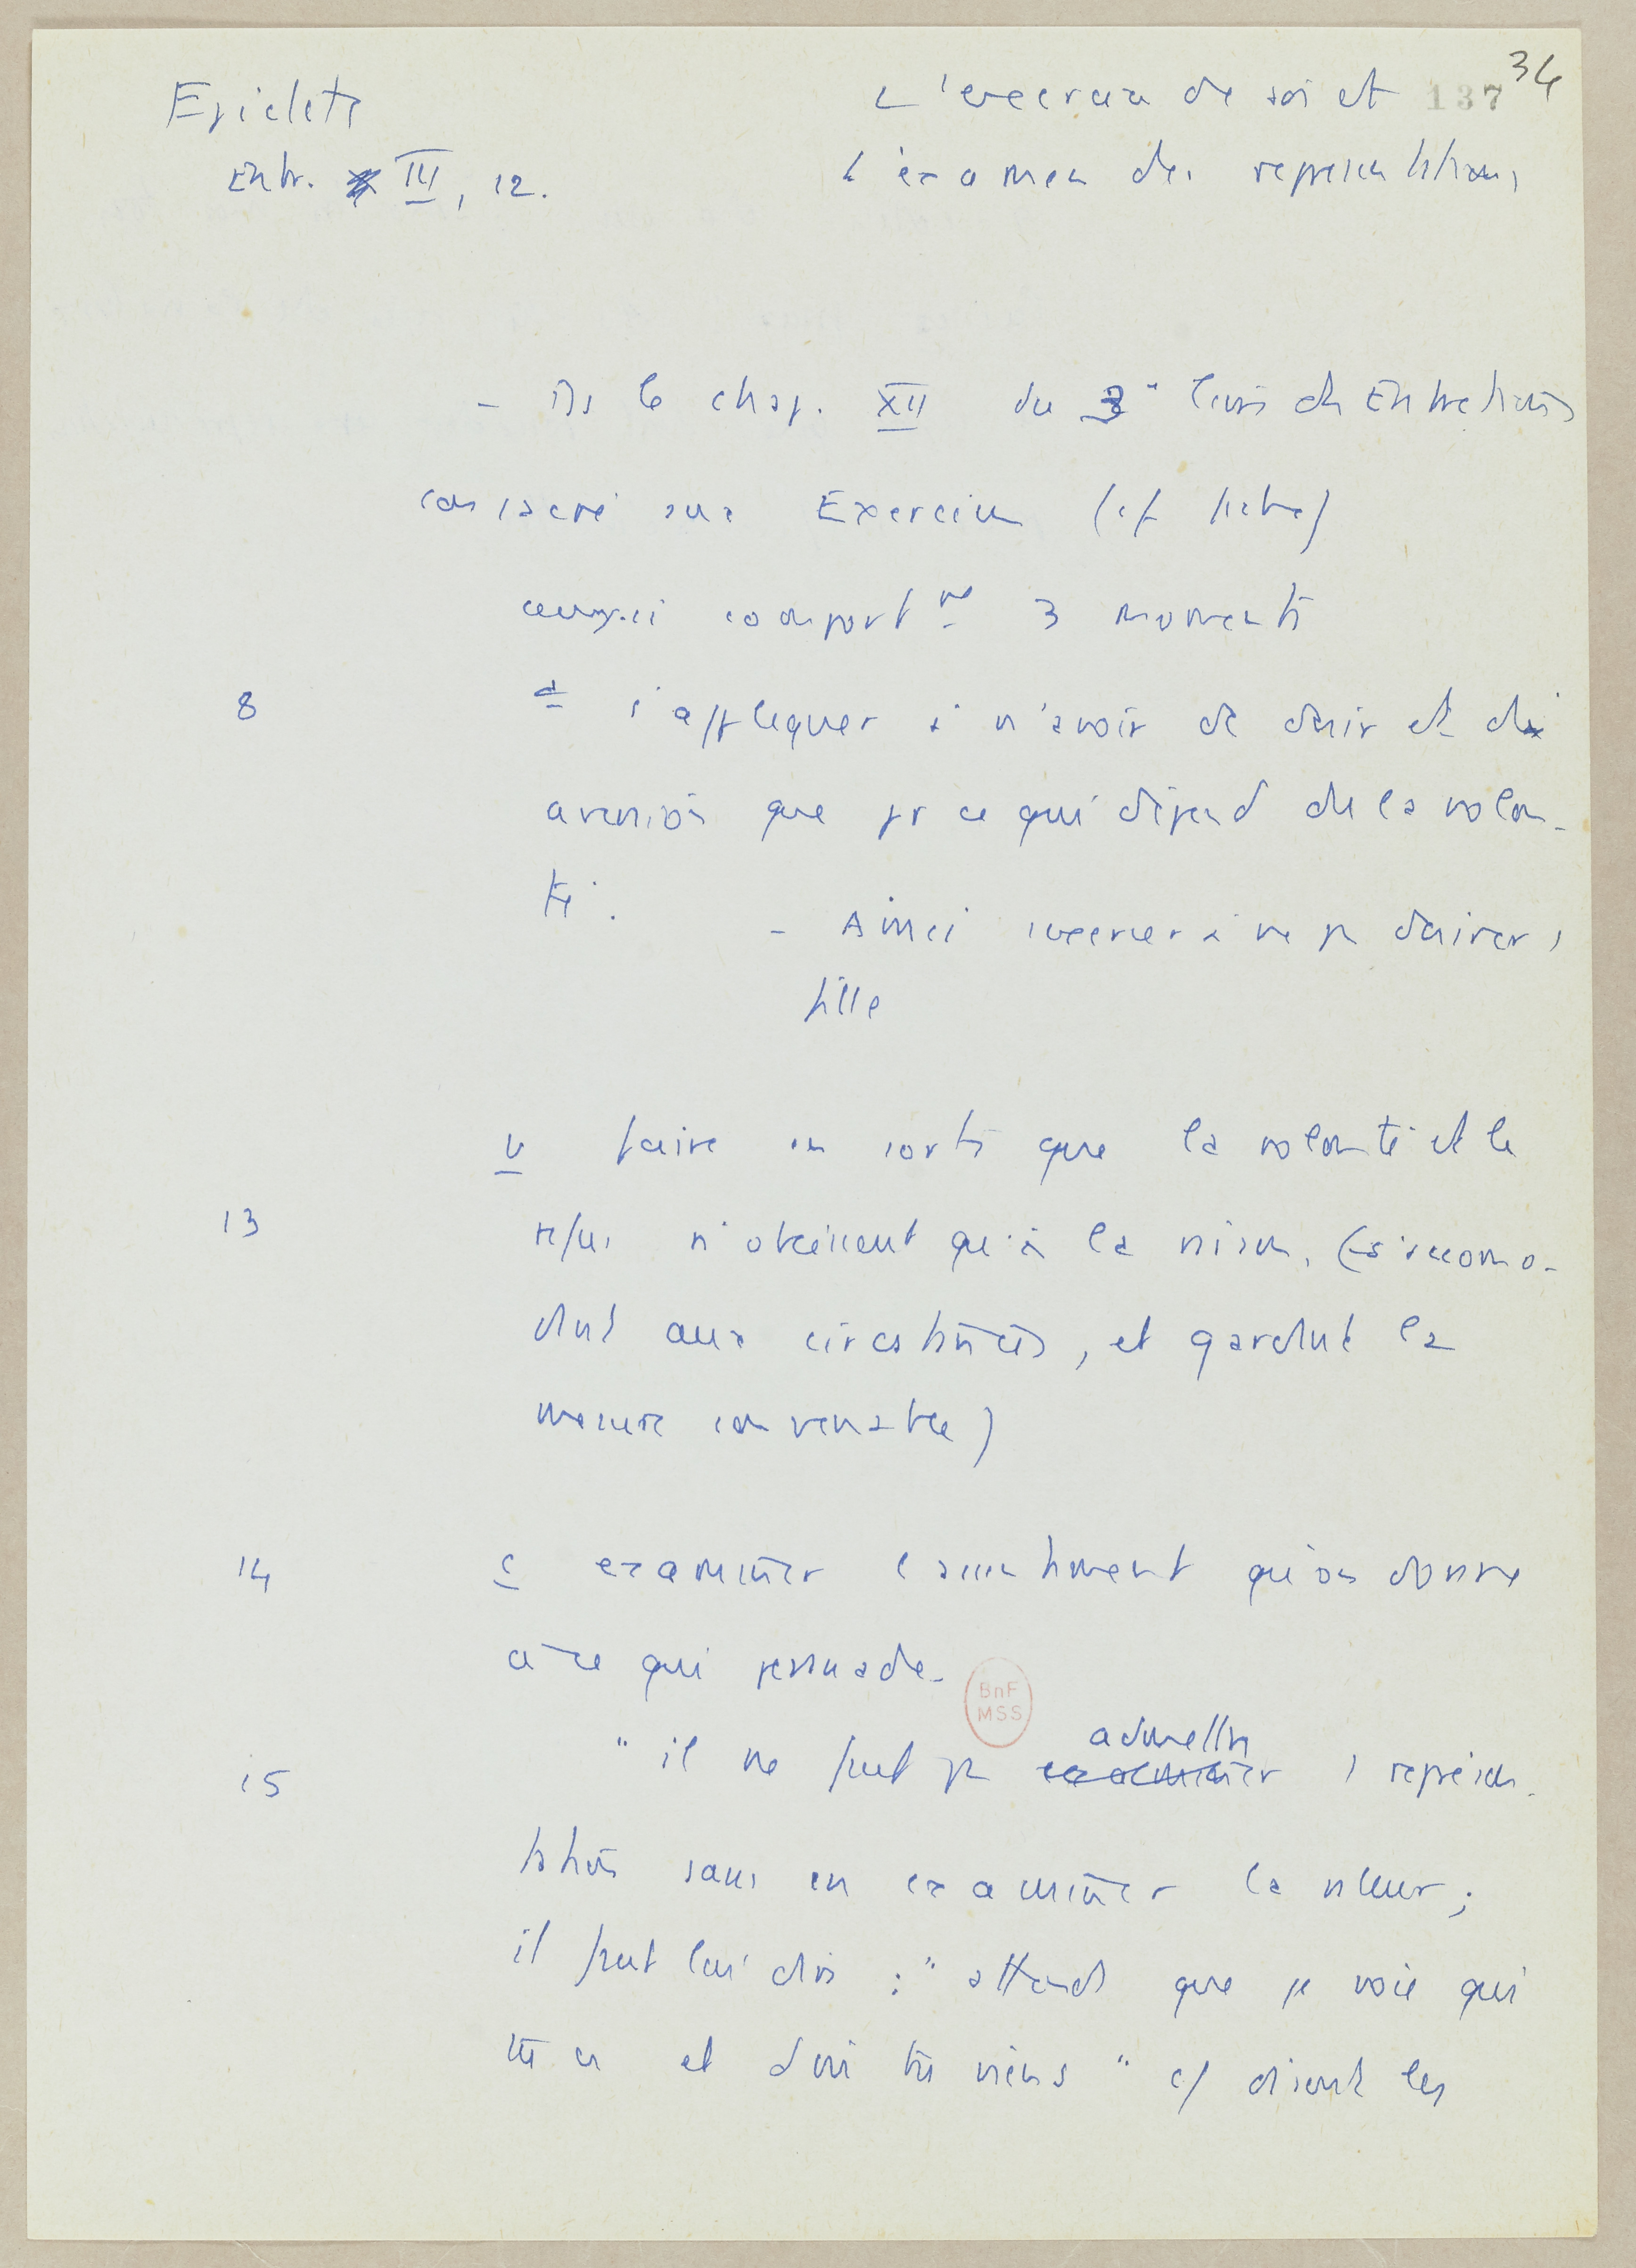 Epictete
Entr. III, 12.
L'exercice de soi et
l'examen des representations
137
34
- Ds le chap. XII du 3e livre des Entretiens
consacré aux Exercices (cf fiche)
ceux-ci comportt 3 moments
8
a s'appliquer à n'avoir de désir et de
aversion que pr ce qui dépend de la volon-
té.
- Ainsi s'exercer à ne p désirer
fille
b faire en sorte que la volonté et le
13
refus n'obéissent qu'à la raison. (s'accomo-
dent aux circonstances, et gardent la
mesure convenable)
14
c examiner l'assentiment qu'on donne
à ce qui persuade.
"il ne faut p admettre 1 représen-
15
tation sans en examiner la valeur;
il faut lui dire : "attends que je voie qui
tu es et d'où tu viens" cf disent les
BnF
MSS